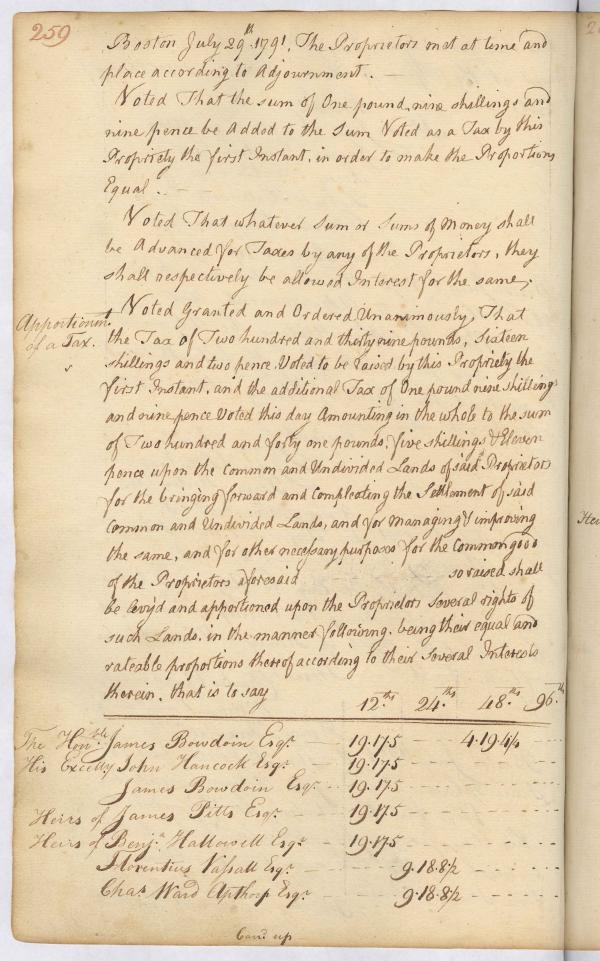 259
Boston July 29th 1791, The Proprietors met at time and
place according to Adjournment. —
Voted That the sum of One pound, nine shillings and
nine pence be Added to the Sum Voted as a Tax by this
Propriety the first Instant, in order to make the Proportions
Equal. —
Voted That whatever Sum or Sums of Money shall
be Advanced for Taxes by any of the Proprietors, they
shall respectively be allowed Interest for the same,
Apportionmt. of a Tax.
Voted Granted and Ordered Unanimously, That
the Tax of Two hundred and thirty nine pounds, Sixteen
shillings and two pence Voted to be raised by this Propriety the
first Instant, and the additional Tax of One pound nine shillings
and nine pence Voted this day Amounting in the whole to the sum
of Two hundred and forty one pounds, five shillings & Eleven
pence upon the Common and Undivided Lands of said Proprietors
for the bringing forward and compleating the Settlement of said
Common and Undivided Lands, and for managing & improving
the same, and for other necessary purposes for the common good
of the Proprietors aforesaid so raised shall
be levy'd and apportioned upon the Proprietors several rights of
such Lands, in the manner following, being their equal and
rateable proportions thereof according to their several Interests
therein, that is to say 12ths 24ths 48ths 96ths
The Honble James Bowdoin Esqr 19.17.5 4.19.4¼
His Excelly John Hancock Esqr 19.17.5
James Bowdoin Esqr 19.17.5
Heirs of James Pitts Esqr 19.17.5
Heirs of Benja Hallowell Esqr 19.17.5
Florentius Vassall Esqr 9.18.8½
Chas Ward Apthorp Esqr 9.18.8½
Card up